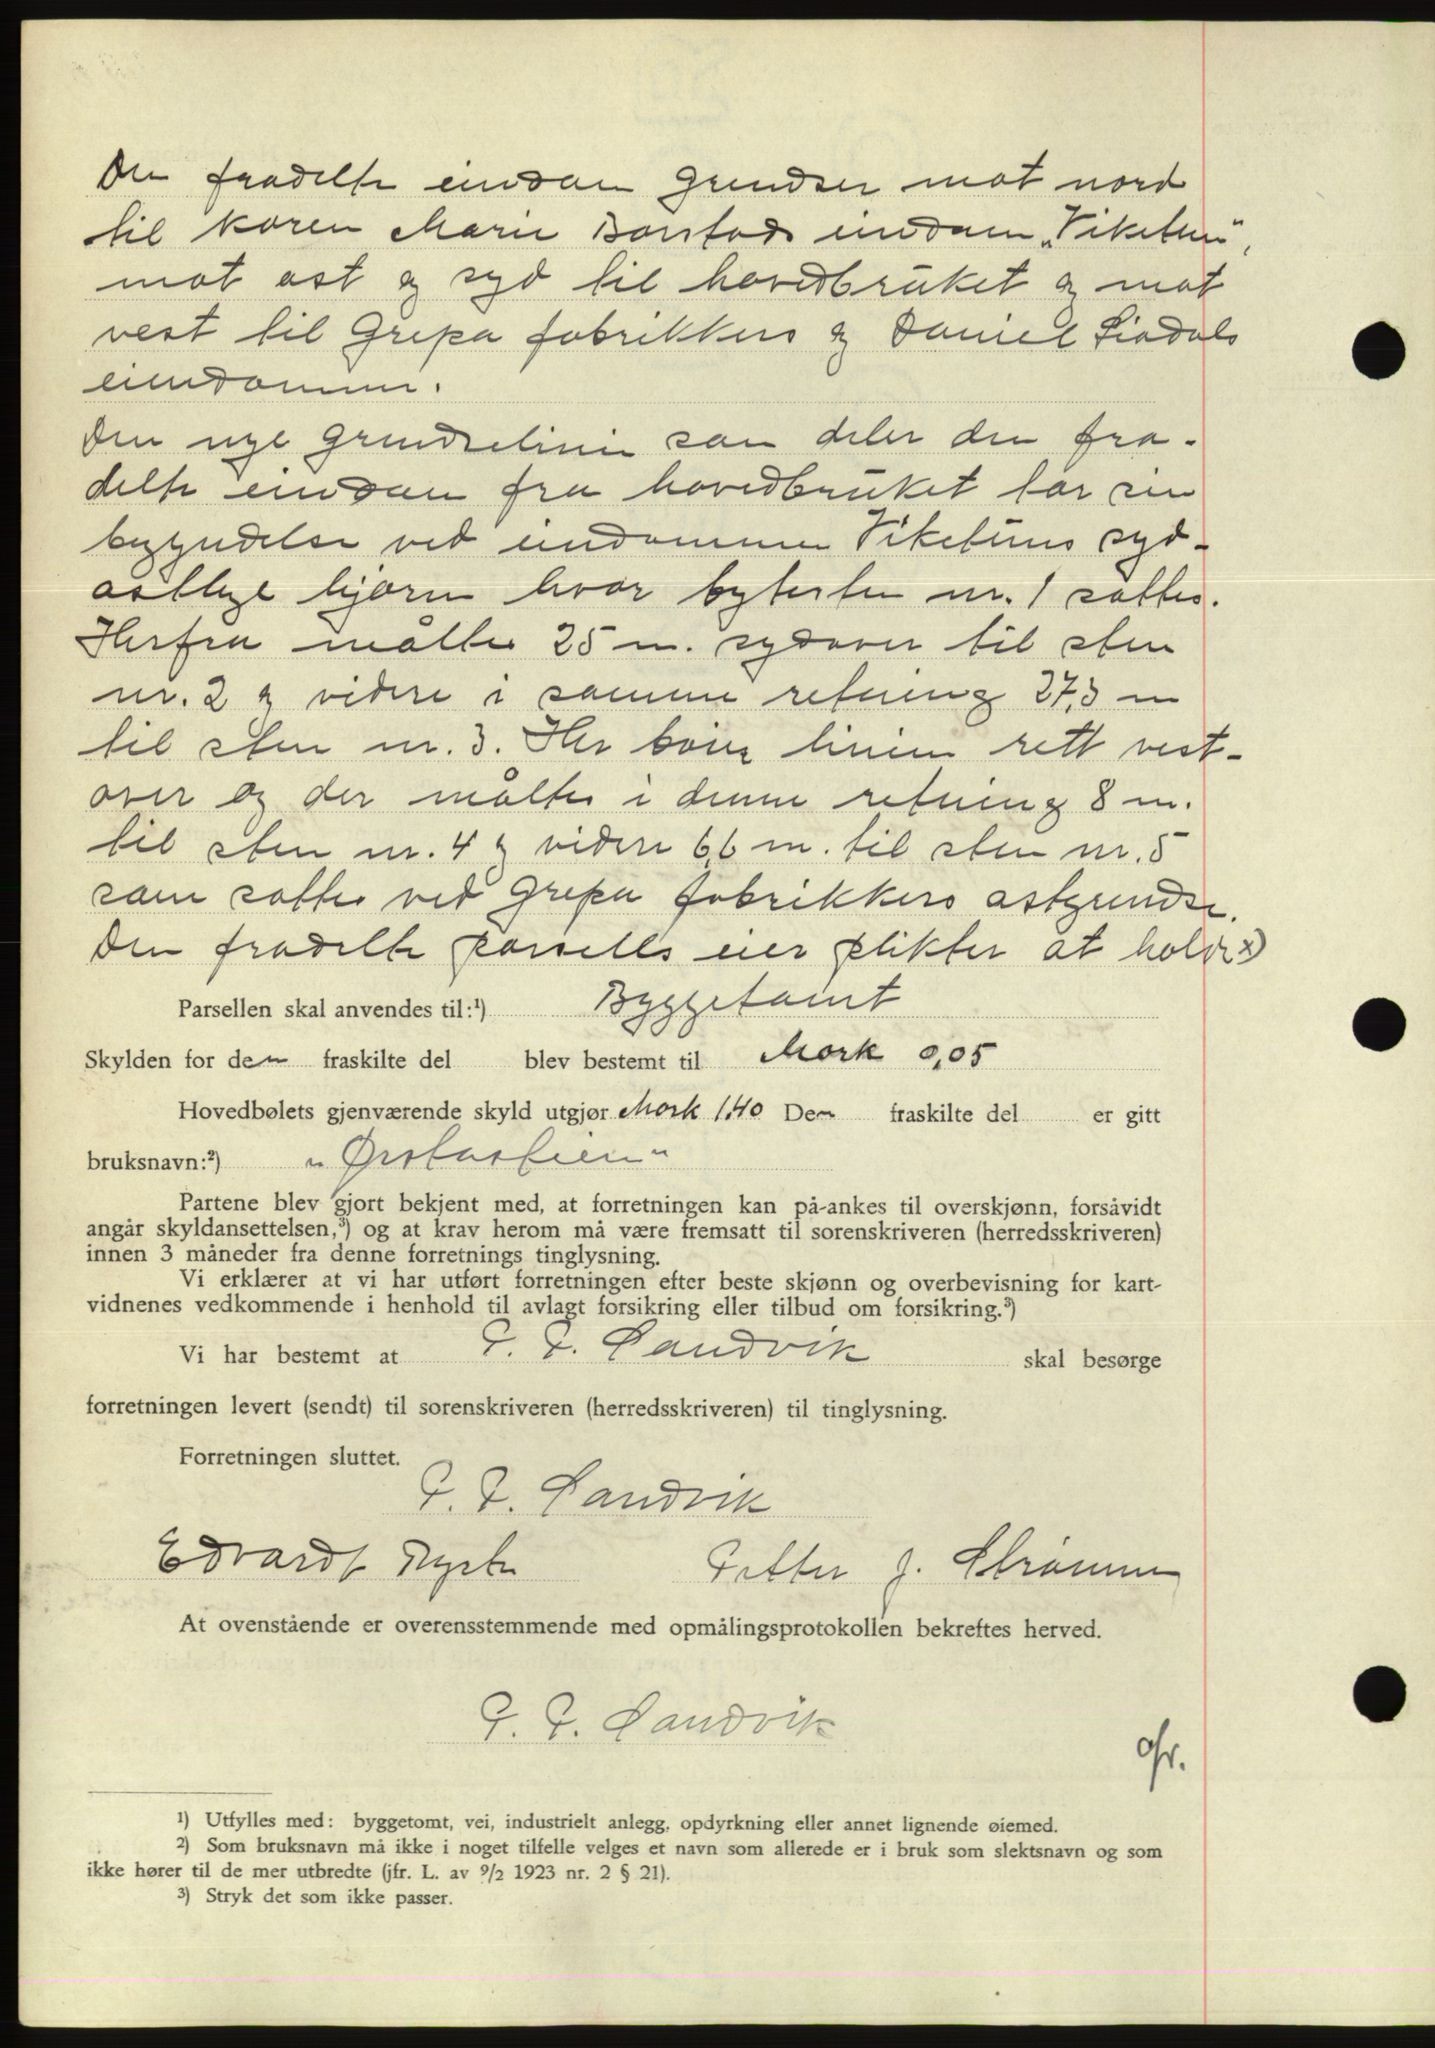 Den fradelte eindom grendser mot nord
til Karen Marie Borstads eindom „Viketun",
mot ost og syd til hovedbruket og mot
vest til Grepa fabrikkers og Daniel Liadals
eiendommer.
Den nye grendselinie som deler den fra-
delte eindom fra hovedbruket tar sin
begyndelse ved eindommen Viketuns syd-
ostlige hjorne hvor bytesten nr. 1 sattes.
Herfra måltes 25 m. sydover til sten
nr. 2 og videre i samme retning 27,3 m
til sten nr. 3. Her boier linien rett vest-
over og der måltes i denne retning 8 m.
til sten nr. 4 og videre 6,6 m. til sten nr. 5
som sattes ved Grepa fabrikkers ostgrendse.
Den fradelte parsells eier plikter at holde x)
Parsellen skal anvendes til:¹) Byggetomt
Skylden for den fraskilte del blev bestemt til Mark 0,05
Hovedbølets gjenværende skyld utgjør Mark 1,40 Den fraskilte del er gitt
bruksnavn:²) „Ørstastien"
Partene blev gjort bekjent med, at forretningen kan på-ankes til overskjønn, forsåvidt
angår skyldansettelsen,³) og at krav herom må være fremsatt til sorenskriveren (herredsskriveren)
innen 3 måneder fra denne forretnings tinglysning.
Vi erklærer at vi har utført forretningen efter beste skjønn og overbevisning for kart-
vidnenes vedkommende i henhold til avlagt forsikring eller tilbud om forsikring.³)
Vi har bestemt at P. P. Sandvik skal besørge
forretningen levert (sendt) til sorenskriveren (herredsskriveren) til tinglysning.
Forretningen sluttet.
P. P. Sandvik
Edvardt Myste Petter J. Strømme
At ovenstående er overensstemmende med opmålingsprotokollen bekreftes herved.
P. P. Sandvik
¹) Utfylles med: byggetomt, vei, industrielt anlegg, opdyrkning eller annet lignende øiemed.
²) Som bruksnavn må ikke i noget tilfelle velges et navn som allerede er i bruk som slektsnavn og som
ikke hører til de mer utbredte (jfr. L. av 9/2 1923 nr. 2 § 21).
³) Stryk det som ikke passer.